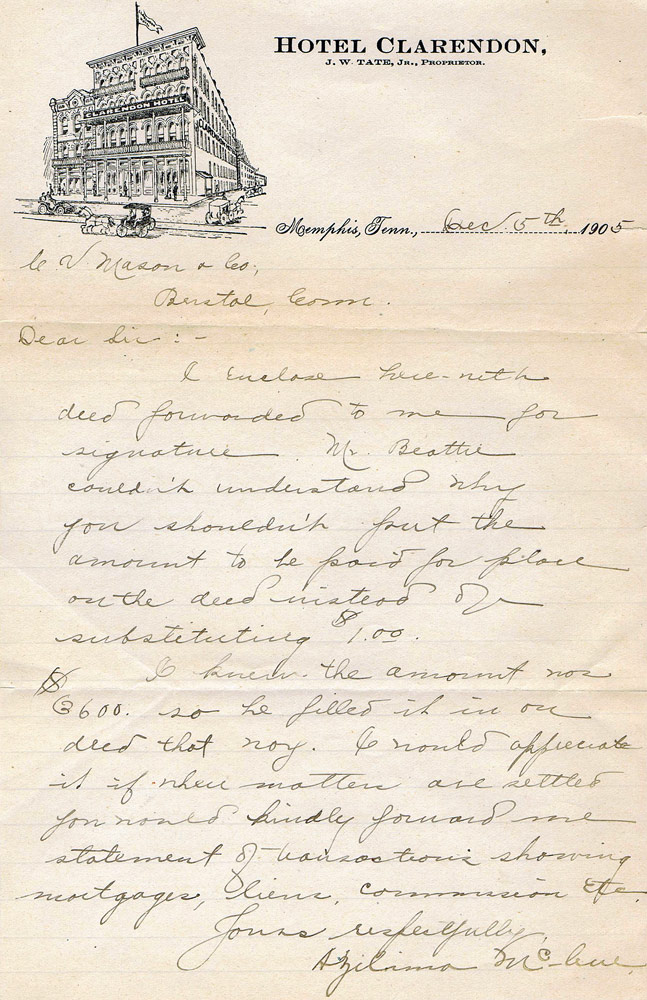 CLARENDON HOTEL
HOTEL CLARENDON,
J. W. TATE, JR., PROPRIETOR.
Memphis, Tenn., Dec. 5th, 1905
C V. Mason & Co.,
Berstol, Conn.
Dear Sir:-
I enclose here-with
deed forwarded to me for
signature Mr. Beattie
couldn't understand why
you shouldn't put the
amount to be paid for place
on the deed instead of
substituting $1.00.
I knew the amount was
$3600. so he filled it in on
deed that way. I would appreciate
it if when matters are settled
you would kindly forward me
statement of transactions showing
mortgages, liens, commission etc.
Yours respectfully,
Mc-